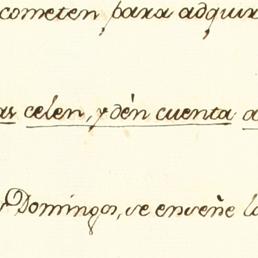 cometen, para adquir
as celen, y dén cuenta a
Domingos, se enseñe la